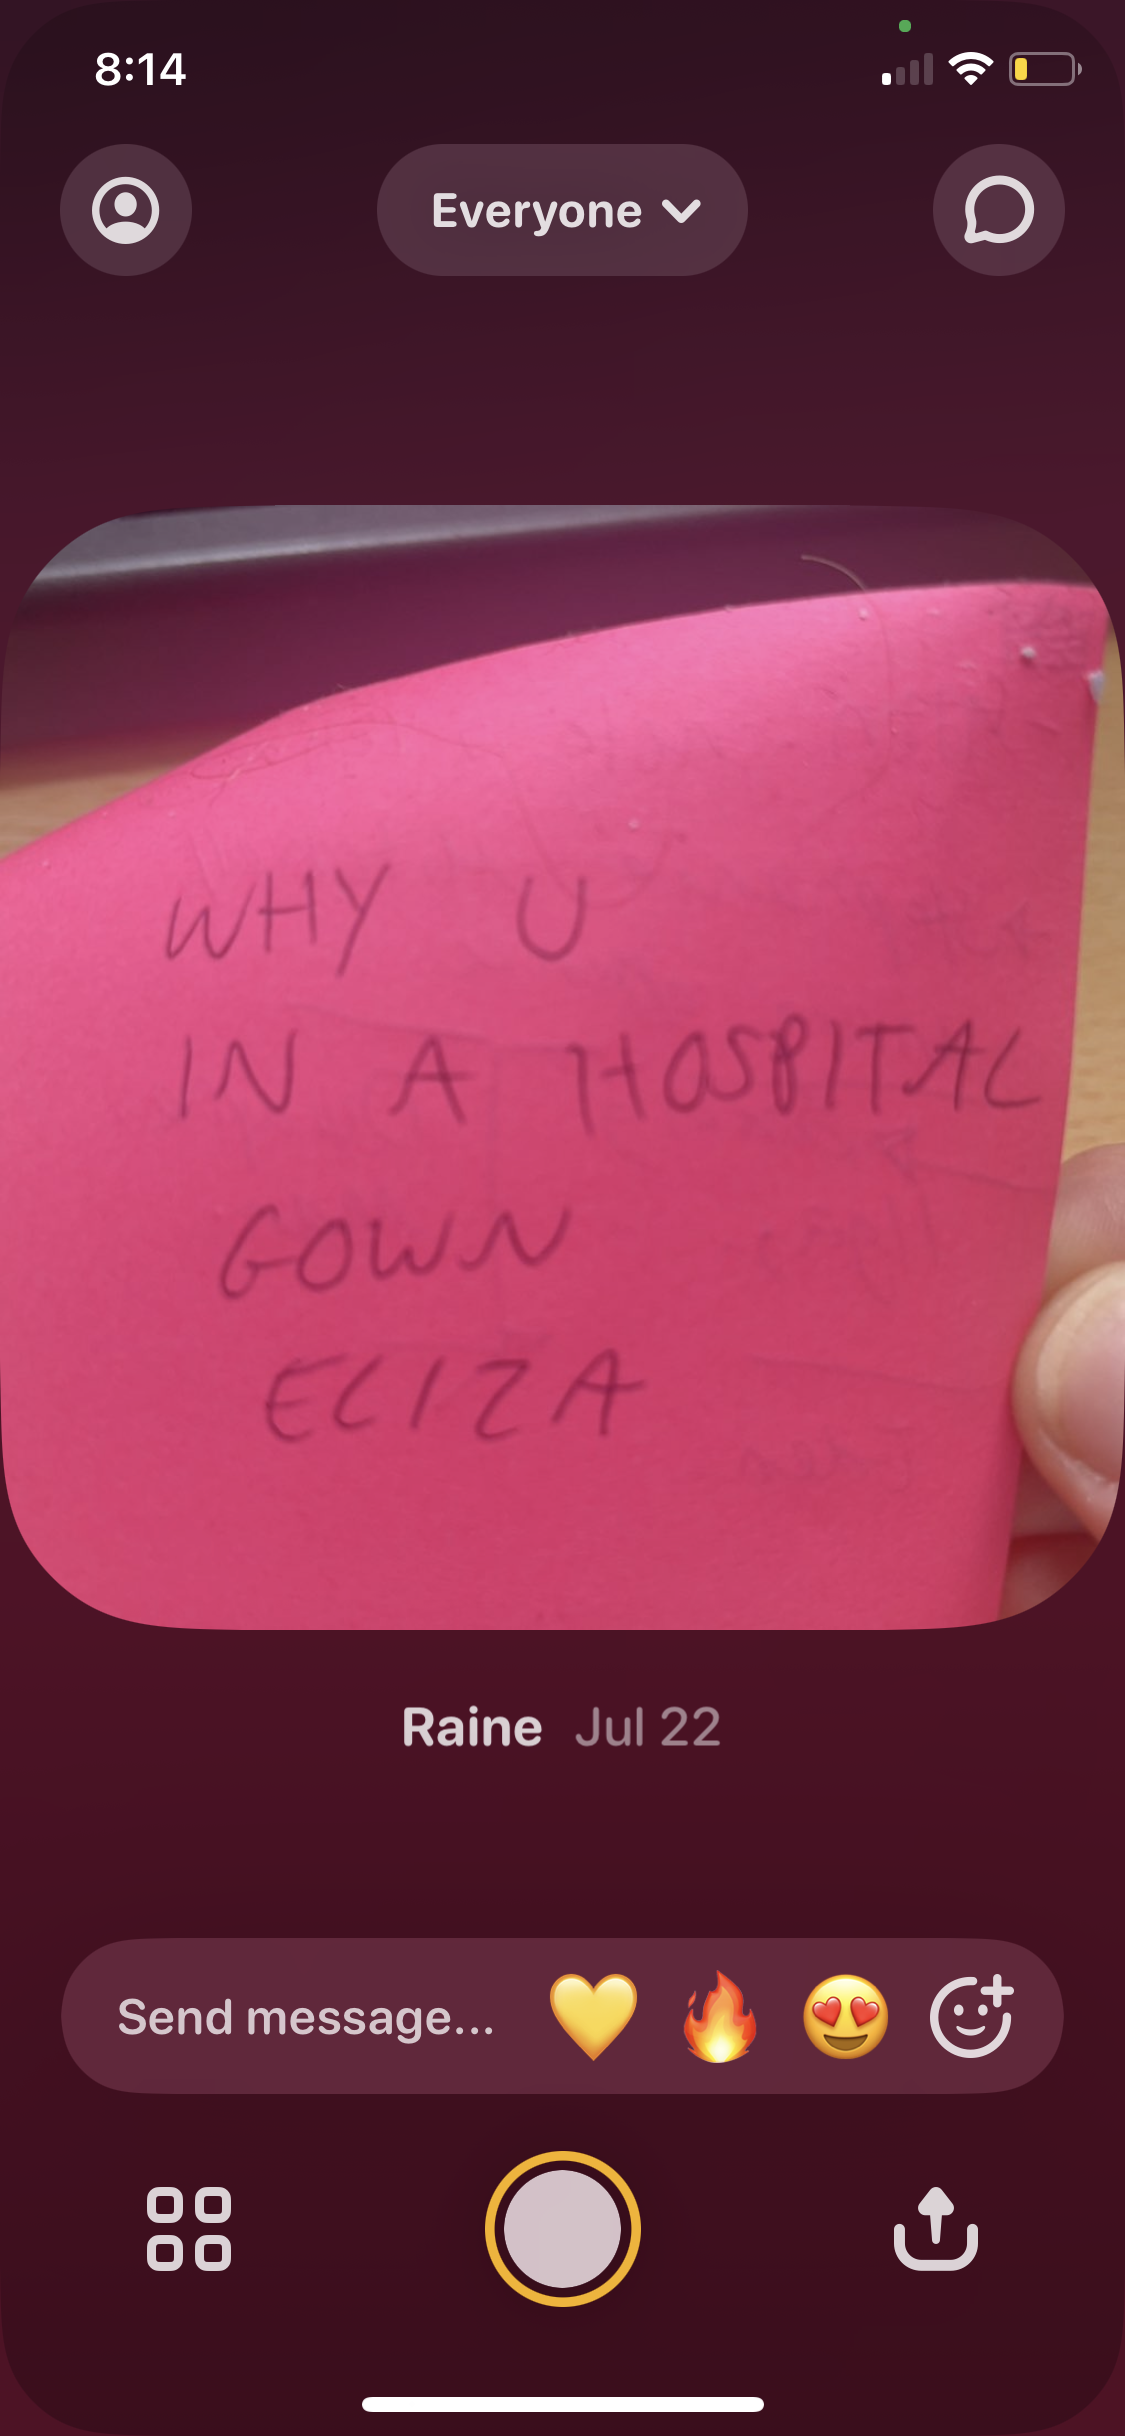 8:14
Everyone
WHY U
IN A HOSPITAL
GOWN
ELIZA
Raine Jul 22
Send message...